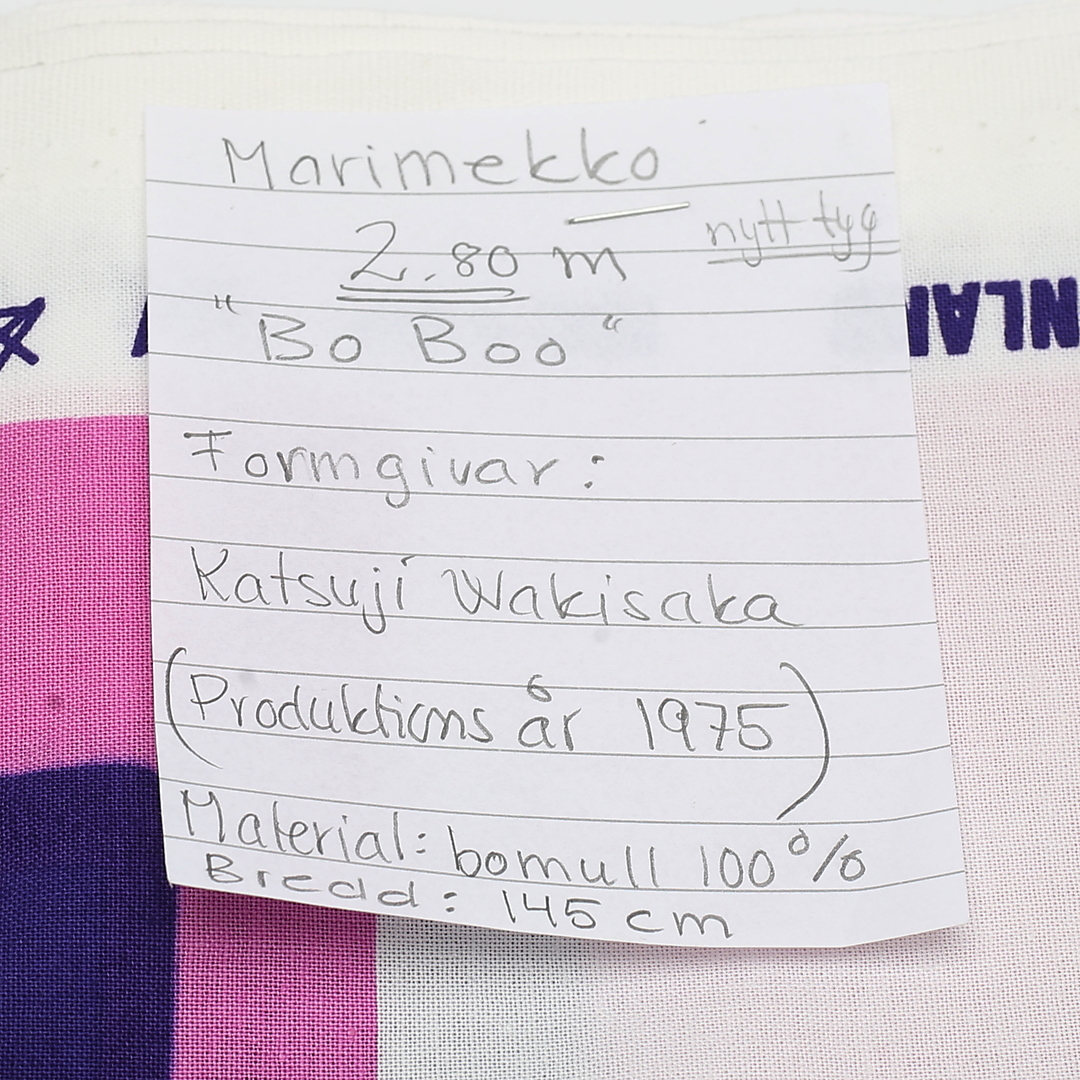 Marimekko
2.80 m nytt tyg
"Bo Boo"
Formgivar:
Katsuji Wakisaka
(Produktions år 1975)
Material: bomull 100%
Bredd: 145 cm